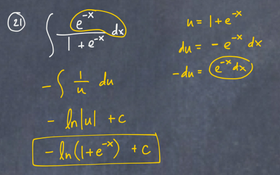 (21) ∫ e^{-x} / (1 + e^{-x}) dx
u = 1 + e^{-x}
du = - e^{-x} dx
- du = e^{-x} dx
- ∫ 1/u du
- ln|u| + c
- ln(1+e^{-x}) + c